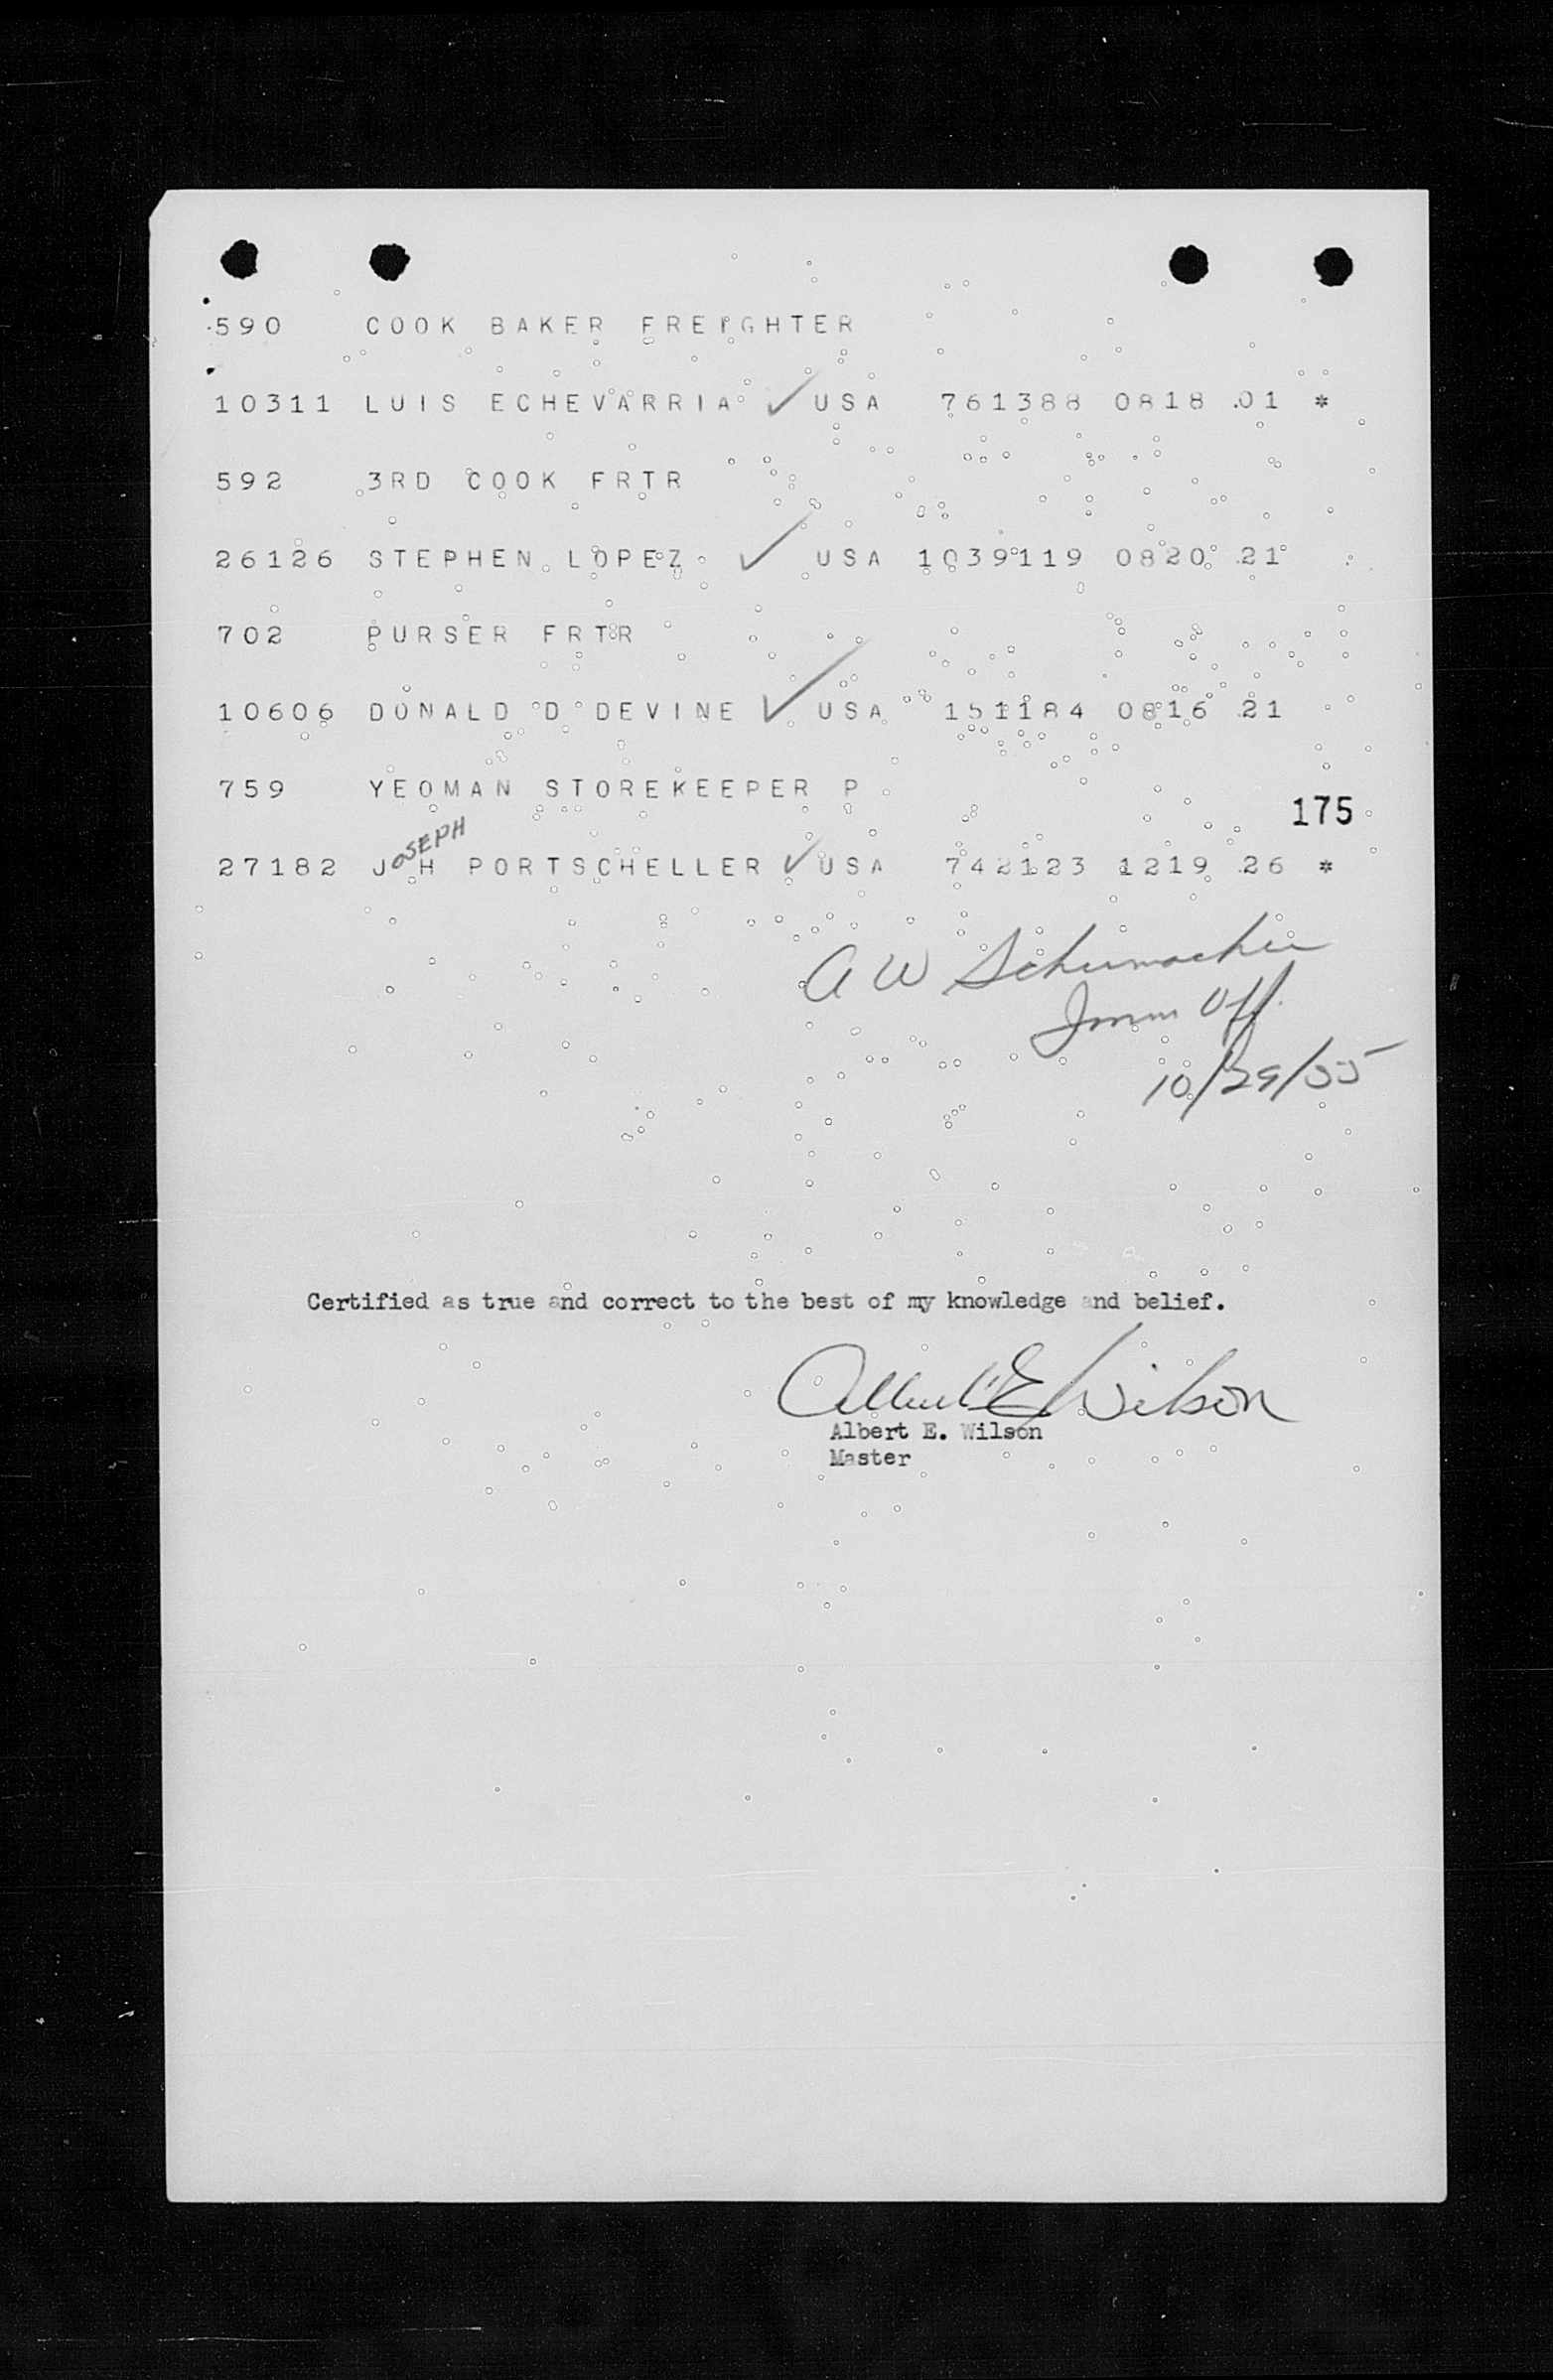 590 COOK BAKER FREIGHTER
10311 LUIS ECHEVARRIA ✓ USA 761388 0818 01 *
592 3RD COOK FRTR
26126 STEPHEN LOPEZ ✓ USA 1039119 0820 21
702 PURSER FRTR
10606 DONALD D DEVINE ✓ USA 151184 0816 21
759 YEOMAN STOREKEEPER P
175
JOSEPH
27182 J H PORTSCHELLER ✓ USA 742123 1219 26 *
A W Schumacher
Imm Off.
10/29/55
Certified as true and correct to the best of my knowledge and belief.
Albert E Wilson
Albert E. Wilson
Master